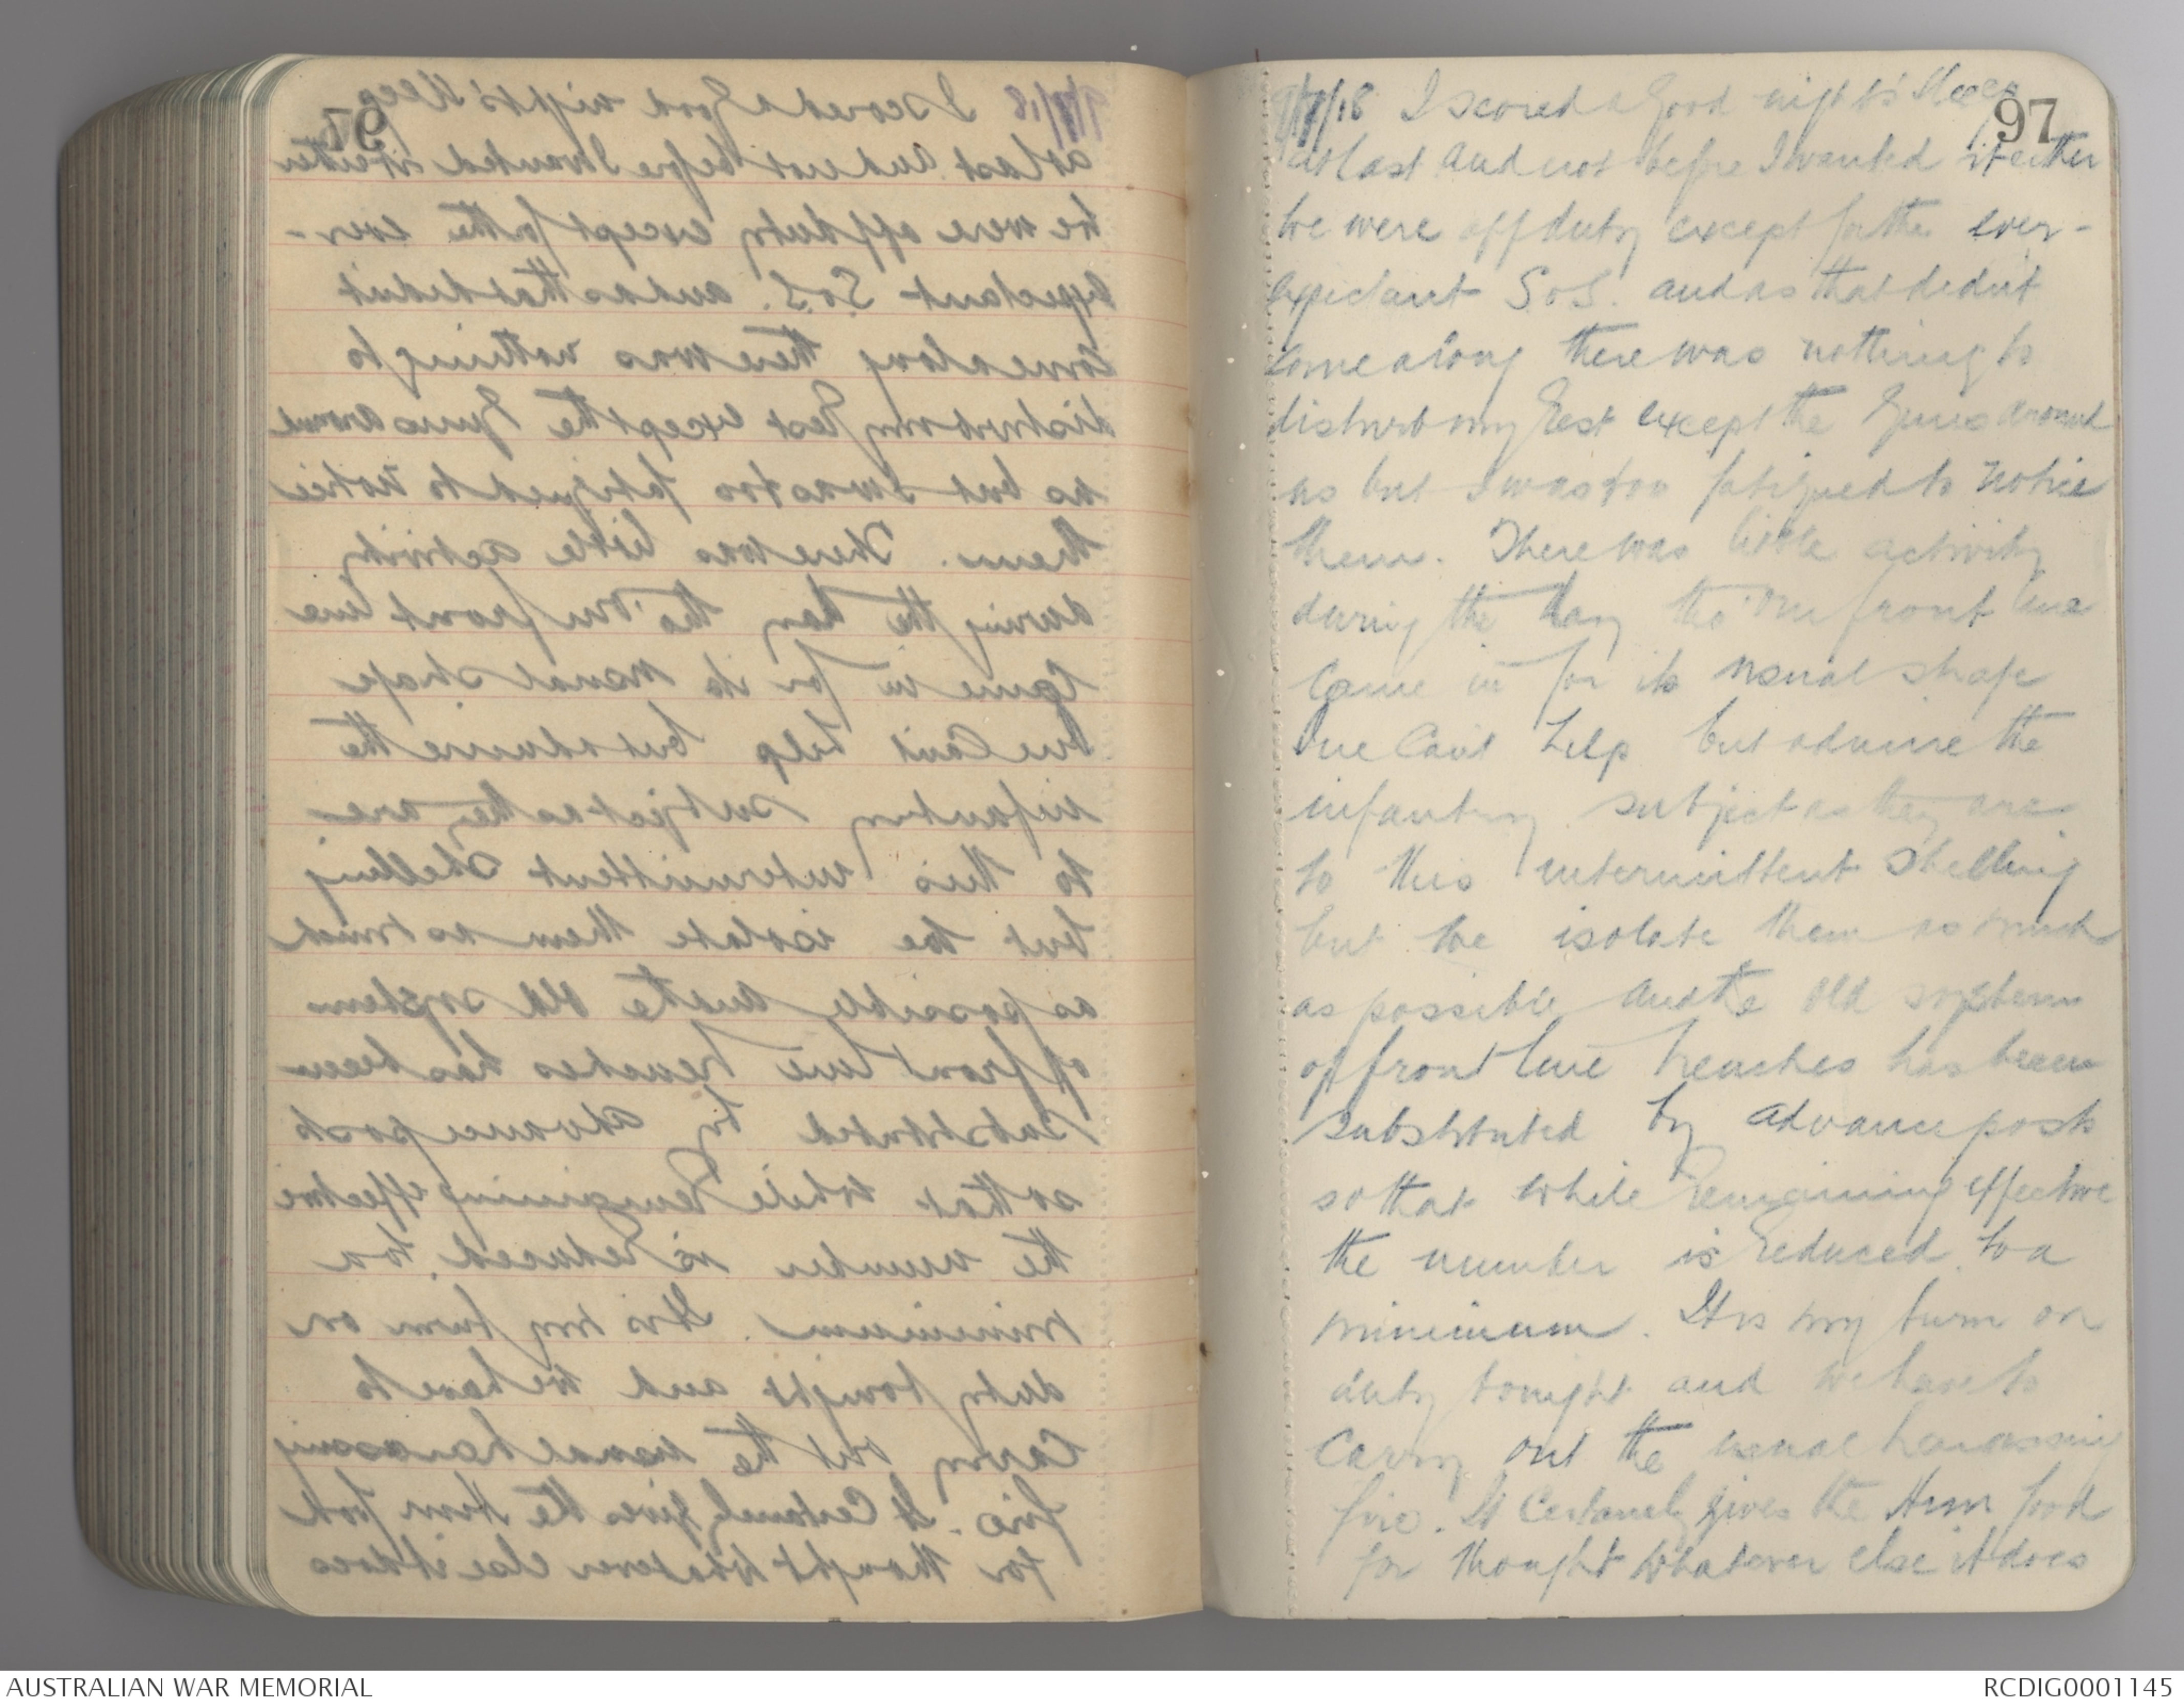 97
9/7/18 I scored a good nights' sleep
at last and not before I wanted it either
We were off duty except for the ever-
expectant SoS. and as that didn't
come along there was nothing to
disturb my Rest except the Guns around
us but I was too fatigued to notice
them. There was little activity
during the day tho' our front line
Came in for its usual strafe
One Can't help but admire the
infantry subject as they are
to this intermittent shelling
but we isolate them as much
as possible and the old system
of front line trenches has been
substituted by advance posts
so that while Remaining effective
the number is Reduced to a
minimum. It is my turn on
duty tonight and we have to
Carry out the usual harassing
fire. It Certainly gives the Hun food
for thought whatever else it does
AUSTRALIAN WAR MEMORIAL
RCDIG0001145